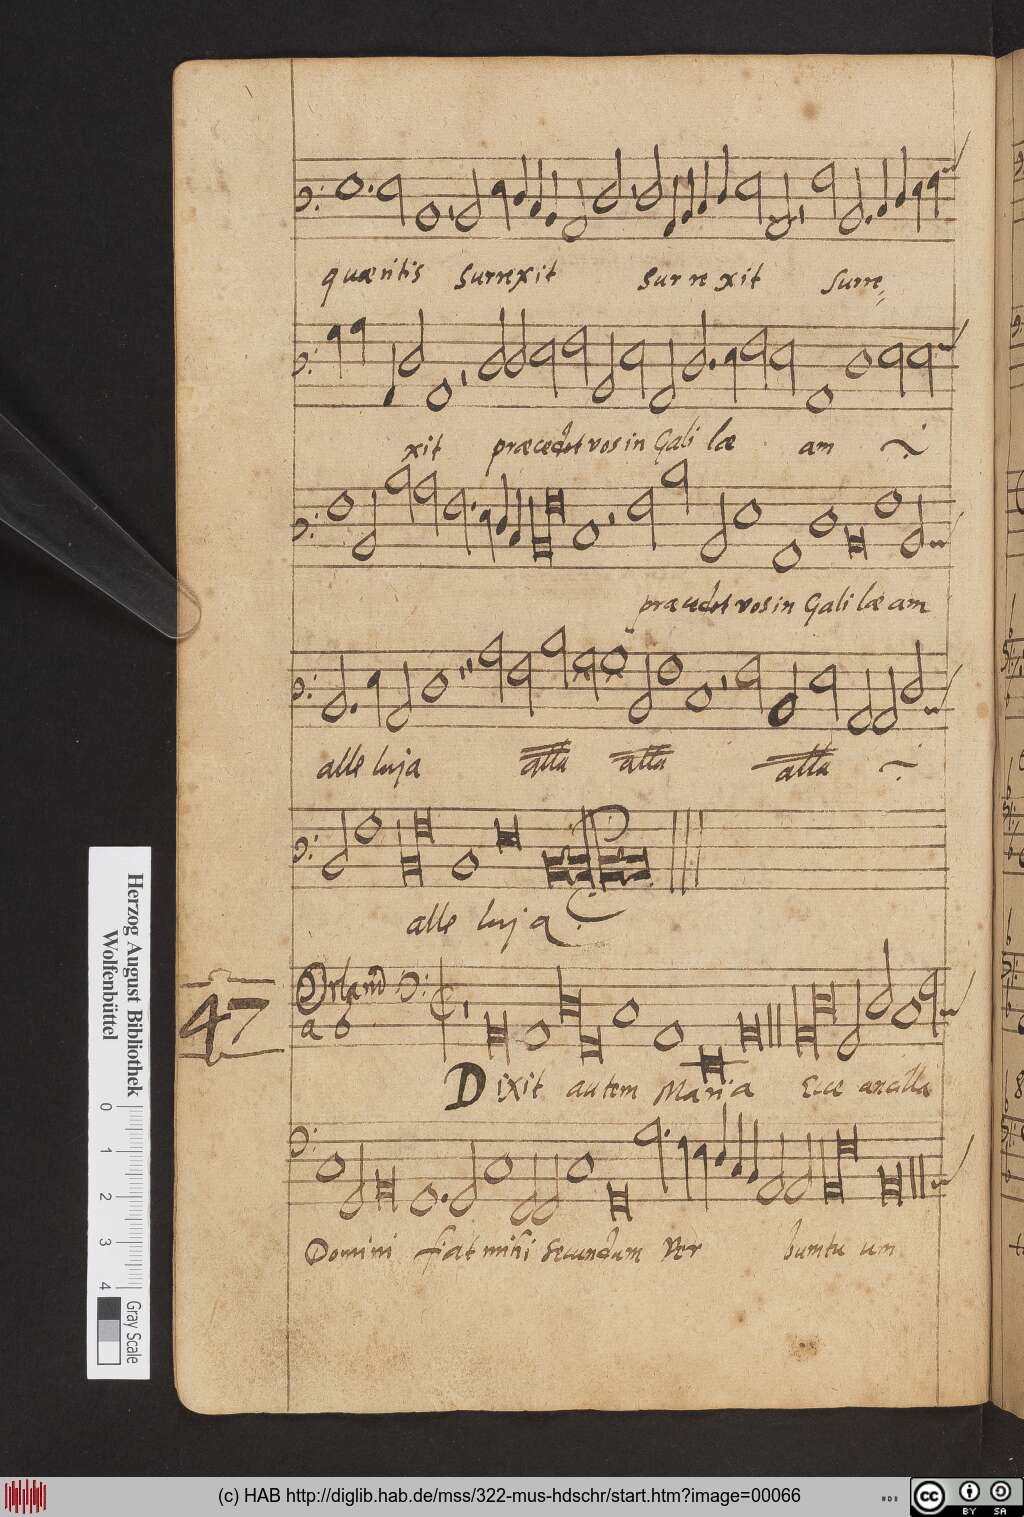 quæritis surrexit surrexit surre=
xit præcedet vos in Gali læ am
præcedet vos in Gali læ am
alle luja alla alla alla
alle luja
47
Orland
a 6
Dixit autem Maria Ecce ancilla
Domini fiat mihi secundum ver bum tu um
Herzog August Bibliothek
Wolfenbüttel
0 1 2 3 4
Gray Scale
(c) HAB http://diglib.hab.de/mss/322-mus-hdschr/start.htm?image=00066
HAB
cc
BY SA